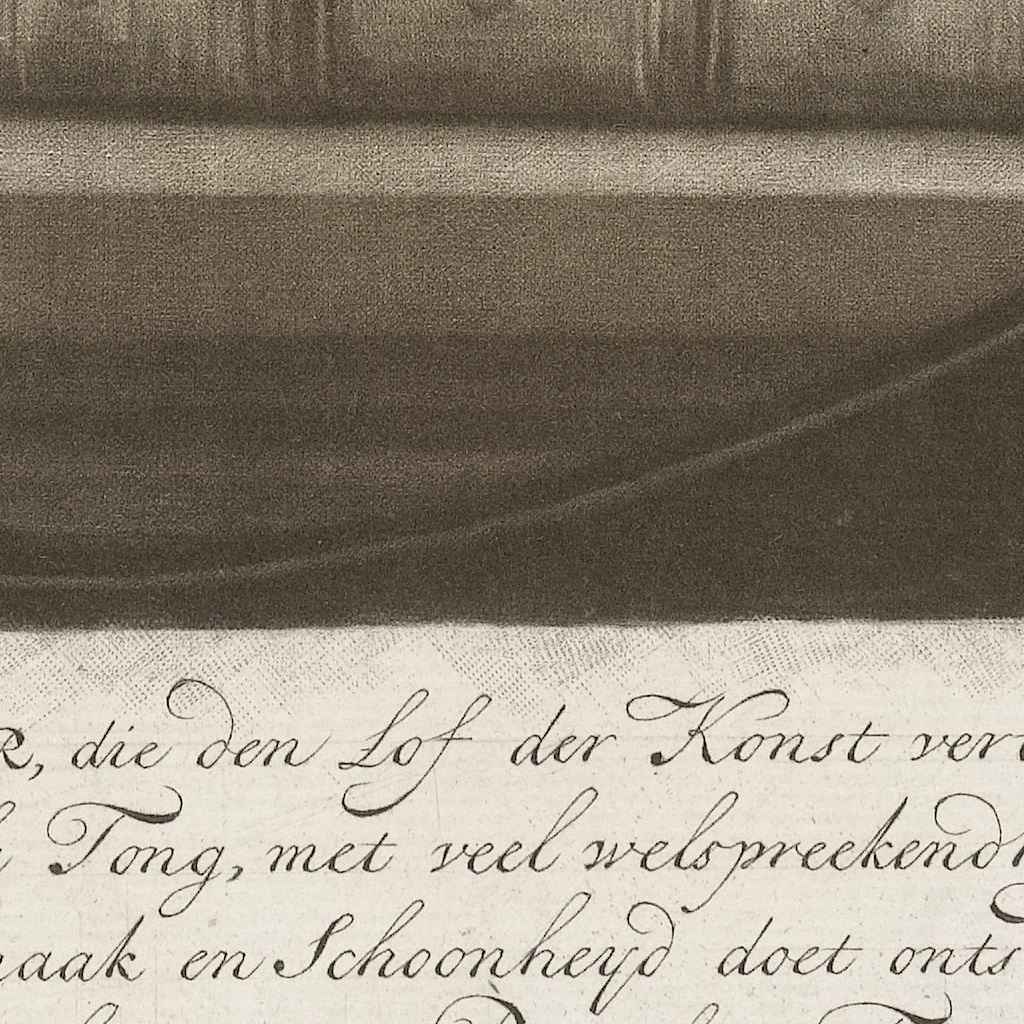 R, die den Lof der Konst
Tong, met veel welspreekend
en Schoonheyd doet